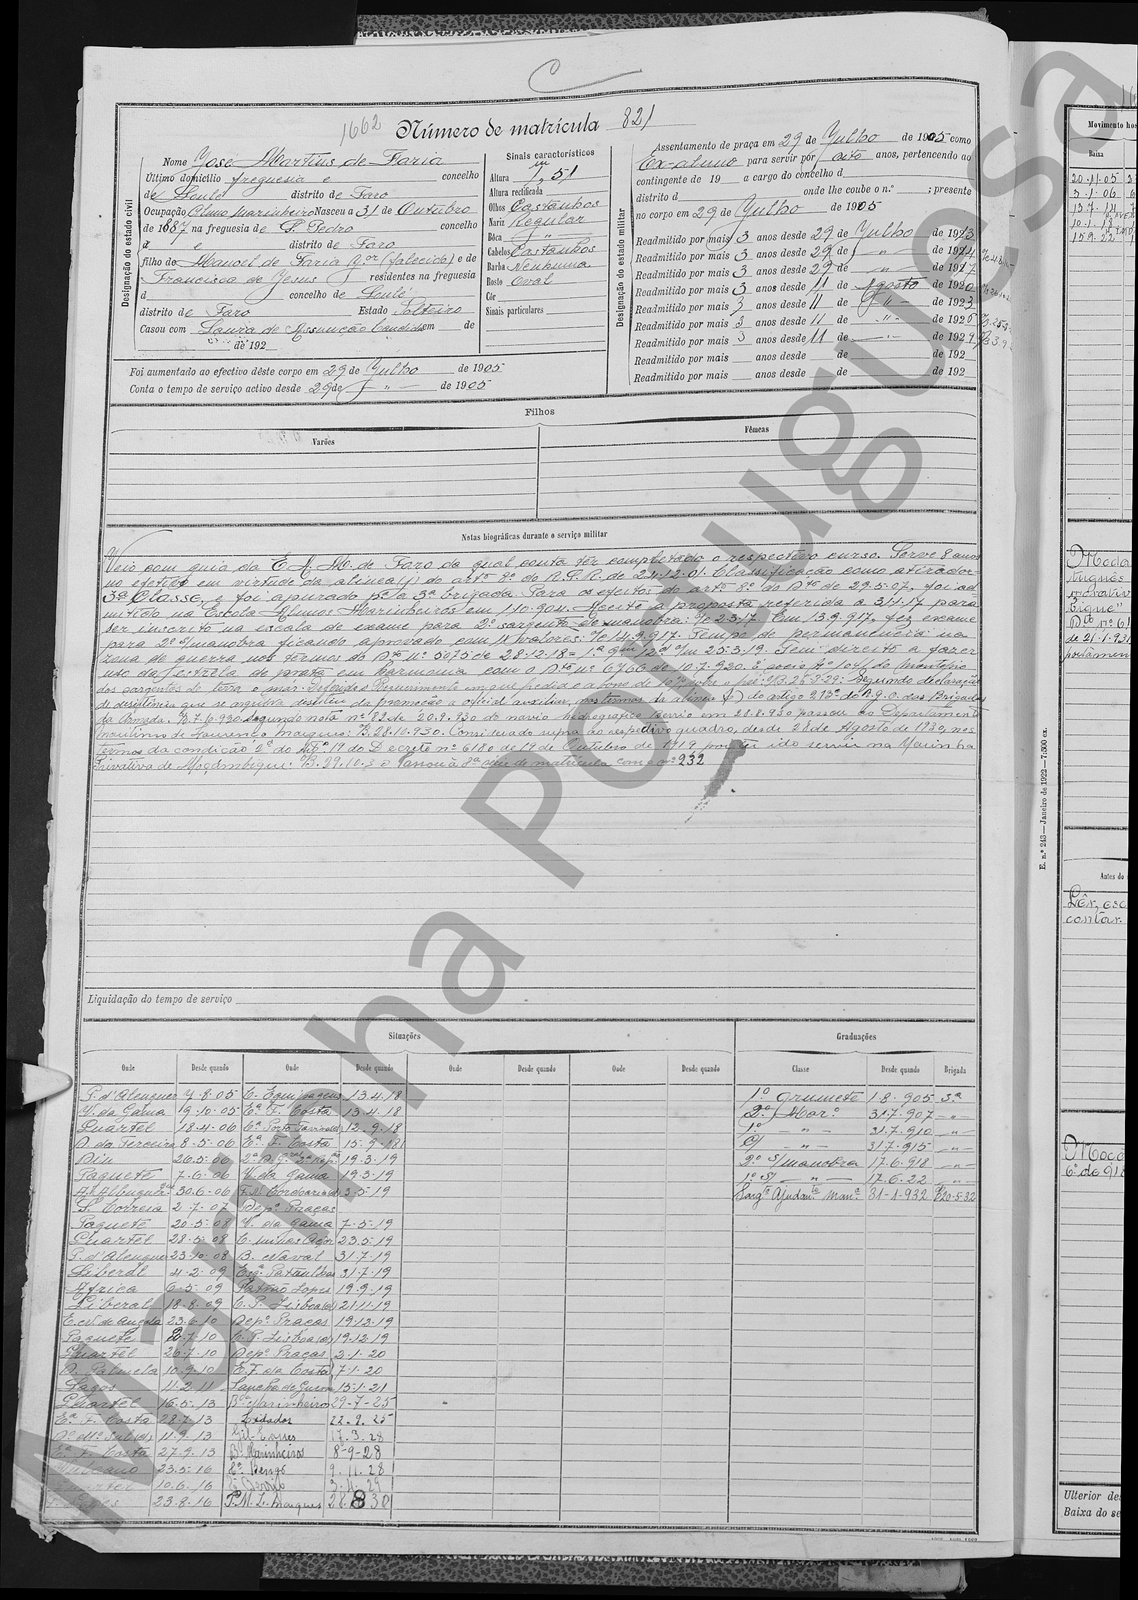 C
1662 Número de matrícula 821
Designação do estado civil
Nome José Martins de Faria
Último domicílio freguesia e concelho
de Loulé distrito de Faro
Ocupação Alno marinheiro Nasceu a 31 de Outubro
de 1887 na freguesia de S. Pedro concelho
d e distrito de Faro
filho de Manoel de Faria Jor (falecido) e de
Francisca de Jesus residentes na freguesia
d concelho de Loulé
distrito de Faro Estado Solteiro
Casou com Laura de Assunção Candida em de
de 192
Foi aumentado ao efectivo dêste corpo em 29 de Julho de 1905
Conta o tempo de serviço activo desde 29 de J " de 1905
Sinais característicos
Altura 1,m51
Altura rectificada
Olhos Castanhos
Nariz Regular
Bôca "
Cabelos Castanhos
Barba Nenhuma
Rosto Oval
Côr
Sinais particulares
Designação do estado militar
Assentamento de praça em 29 de Julho de 1905 como
Ex-aluno para servir por oito anos, pertencendo ao
contingente de 19 a cargo do concelho d
distrito d onde lhe coube o n.º ; presente
no corpo em 29 de Julho de 1905
Readmitido por mais 3 anos desde 29 de Julho de 1913
Readmitido por mais 3 anos desde 29 de J " de 1914
Readmitido por mais 3 anos desde 29 de " de 1917
Readmitido por mais 3 anos desde 11 de Agosto de 1920
Readmitido por mais 3 anos desde 11 de " de 1923
Readmitido por mais 3 anos desde 11 de " de 1926
Readmitido por mais 3 anos desde 11 de " de 1929
Readmitido por mais anos desde de de 192
Readmitido por mais anos desde de de 192
Filhos
Varões Fêmeas
Notas biográficas durante o serviço militar
Veio com guia da E. A. M. de Faro da qual consta ter completado o respectivo curso. Serve 8 anos
no efetivo em virtude da alinea (f) do artº 2º do R. P. R. de 24.12.01. Classificação como atirador
3ª Classe, e foi apurado pª a 3ª brigada. Para os efeitos do artº 8º do Dto de 29.5.07, foi ad
mitido na Escola Alunos Marinheiros em 1.10.904. Aceite a proposta referida a 31.1.17 para
ser inscrito na escala de exame para 2º sargento de manobra: Em 13.9.917, fez exame
para 2º s/manobra ficando aprovado com 11 valores: Tempo de permanencia na
zona de guerra nos termos do Dto nº 5075 de 28.12.18 = Tem direito a fazer
uso da estrela de prata em harmonia com o Dto nº 6766 de 10.7.920. É socio nº 1041 do Montepio
dos sargentos de terra e mar. Segundo declaração
de desistencia que se arquiva desistiu da promoção a oficial auxiliar, nos termos da alinea do artigo 213º do R.G.O. das Brigadas
da Armada. B.7.6.930 Segundo nota nº 82 de 20.9.930 do navio hidrografico Berrio em 28.8.930 passou ao Departamento
maritimo de Lourenço Marques: B.28.10.930. Considerado supra ao respetivo quadro, desde 28 de Agosto de 1930, nos
termos da condição 2ª do artº 19 do Decreto nº 6180 de 19 de Outubro de 1919 por ter ido servir na Marinha
Privativa de Moçambique: B. 29.10.30 Passou à 8ª serie de matricula com o nº 232
Liquidação do tempo de serviço
Situações Graduações
Onde Desde quando Onde Desde quando Onde Desde quando Onde Desde quando Classe Desde quando Brigada
P. d'Alenquer 4.8.05 C. Equipagens 13.4.18 1º Grumete 1.8.905 3ª
V. da Gama 19.10.05 Eª F. Costa 13.4.18 2º Marº 31.7.907 "
Quartel 18.4.06 12.9.18 1º " 31.7.910 "
D. da Terceira 8.5.06 Eª F. Costa 15.9.18 C/ " 31.7.915 "
Diu 26.5.06 19.3.19 2º s/manobra 17.6.918 "
Paquete 7.6.06 V. da Gama 19.3.19 1º s/ " 17.6.22 "
A. Albuquerque 30.6.06 3.5.19 Sargto Ajudante manª 31-1-932 20.5.32
P. Correia 2.7.07 Depº Praças
Paquete 20.5.08 V. da Gama 7.5.19
Quartel 28.5.08 23.5.19
P. d'Alenquer 23.10.08 B. Naval 31.7.19
Liberal 4.2.09 Esqª Patrulhas 31.7.19
Africa 6.5.09 Patrão Lopes 19.9.19
Liberal 18.8.09 C. P. Lisboa 21.11.19
E. N. de Angola 23.6.10 Depº Praças 19.12.19
Paquete 2.7.10 C. P. Lisboa 19.12.19
Quartel 26.7.10 Depº Praças 2.1.20
D. Palmela 10.9.10 E. F. da Costa 7.1.20
Lagos 4.2.11 15.1.21
Quartel 16.5.13 Bª Marinheiros 29-7-25
Eª F. Costa 28.7.13 22.9.25
11.9.13 Gil Eannes 17.3.28
Eª F. Costa 27.9.13 Bª Marinheiros 8-9-28
23.5.16 Cª Bengo 9.11.28
Quartel 10.6.16 Berrio 3.4.29
23.8.16 P. M. L. Marques 28.8.30
E. n.º 243 — Janeiro de 1922 — 7:500 ex.
Movimento hos
Baixa
20.11.05
3.1.06
13.7.11
10.1.18
15.9.22
Antes do
Lêr, esc
contar.
Ulterior des
Baixa do se
Marinha Portuguesa